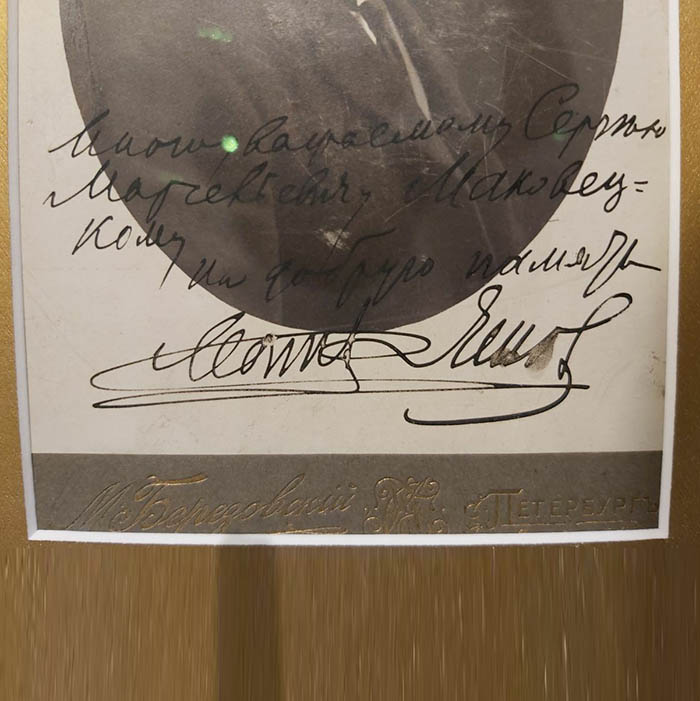 Многоуважаемому Сергею
Маркеевичу Маковец=
кому
на добрую память
М. Березовский
С. ПЕТЕРБУРГЪ